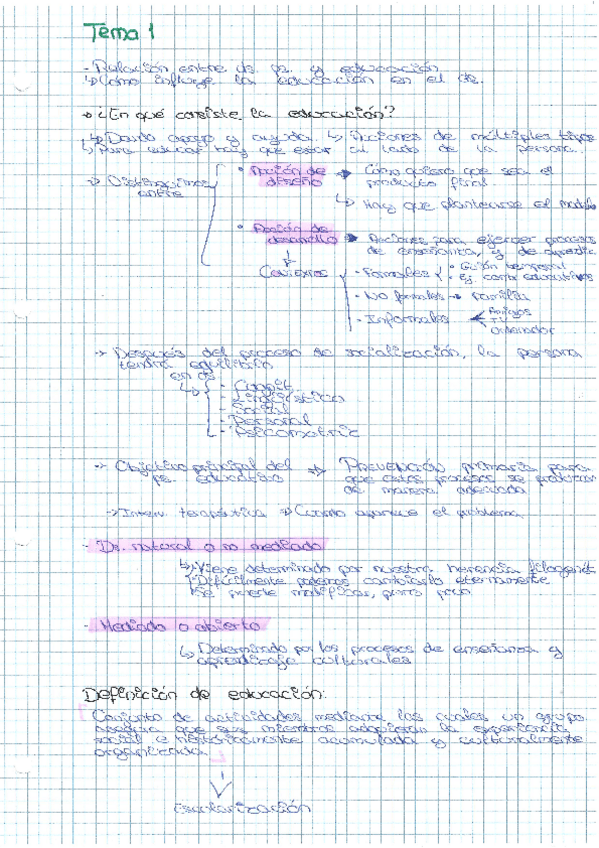 Tema 1
- Relación entre ds. ps. y educación
↳ Cómo influye la educación en el ds.
→ ¿En qué consiste la educación?
↳ Dando apoyo y ayuda. ↳ Acciones de múltiples tipos
↳ Para educar hay que estar al lado de la persona.
→ Distinguimos entre
• Acción de diseño → Cómo quiero que sea el producto final
↳ Hay que plantearse el modelo
• Acción de desarrollo → Acciones para ejercer procesos de enseñanza, y de aprendiz
↓
Contextos
- Formales • Guión temporal
• Ej. centros educativos
- No formales → familia
- Informales ← Amigos
TV
Ordenador
→ Después del proceso de socialización, la persona
tendrá equilibrio
en ds
↳ - Cognit.
- Lingüística
- Social
- Personal
- Psicomotriz
→ Objetivo principal del ps. educativo ⇒ PREVENCIÓN primaria para
que estos procesos se produzcan
de manera adecuada
→ Interv. terapéutica ⇒ Cuando aparece el problema
- Ds. natural o no mediado
↳ Viene determinado por nuestra herencia filogenét
Difícilmente podemos cambiarlo externamente
Se puede modificar, pero poco
- Mediado o abierto
↳ Determinado por los procesos de enseñanza y
aprendizaje culturales
Definición de educación:
Conjunto de actividades mediante las cuales un grupo
asegura que sus miembros adquieran la experiencia
social e históricamente acumulada y culturalmente
organizada.
↓
Escolarización